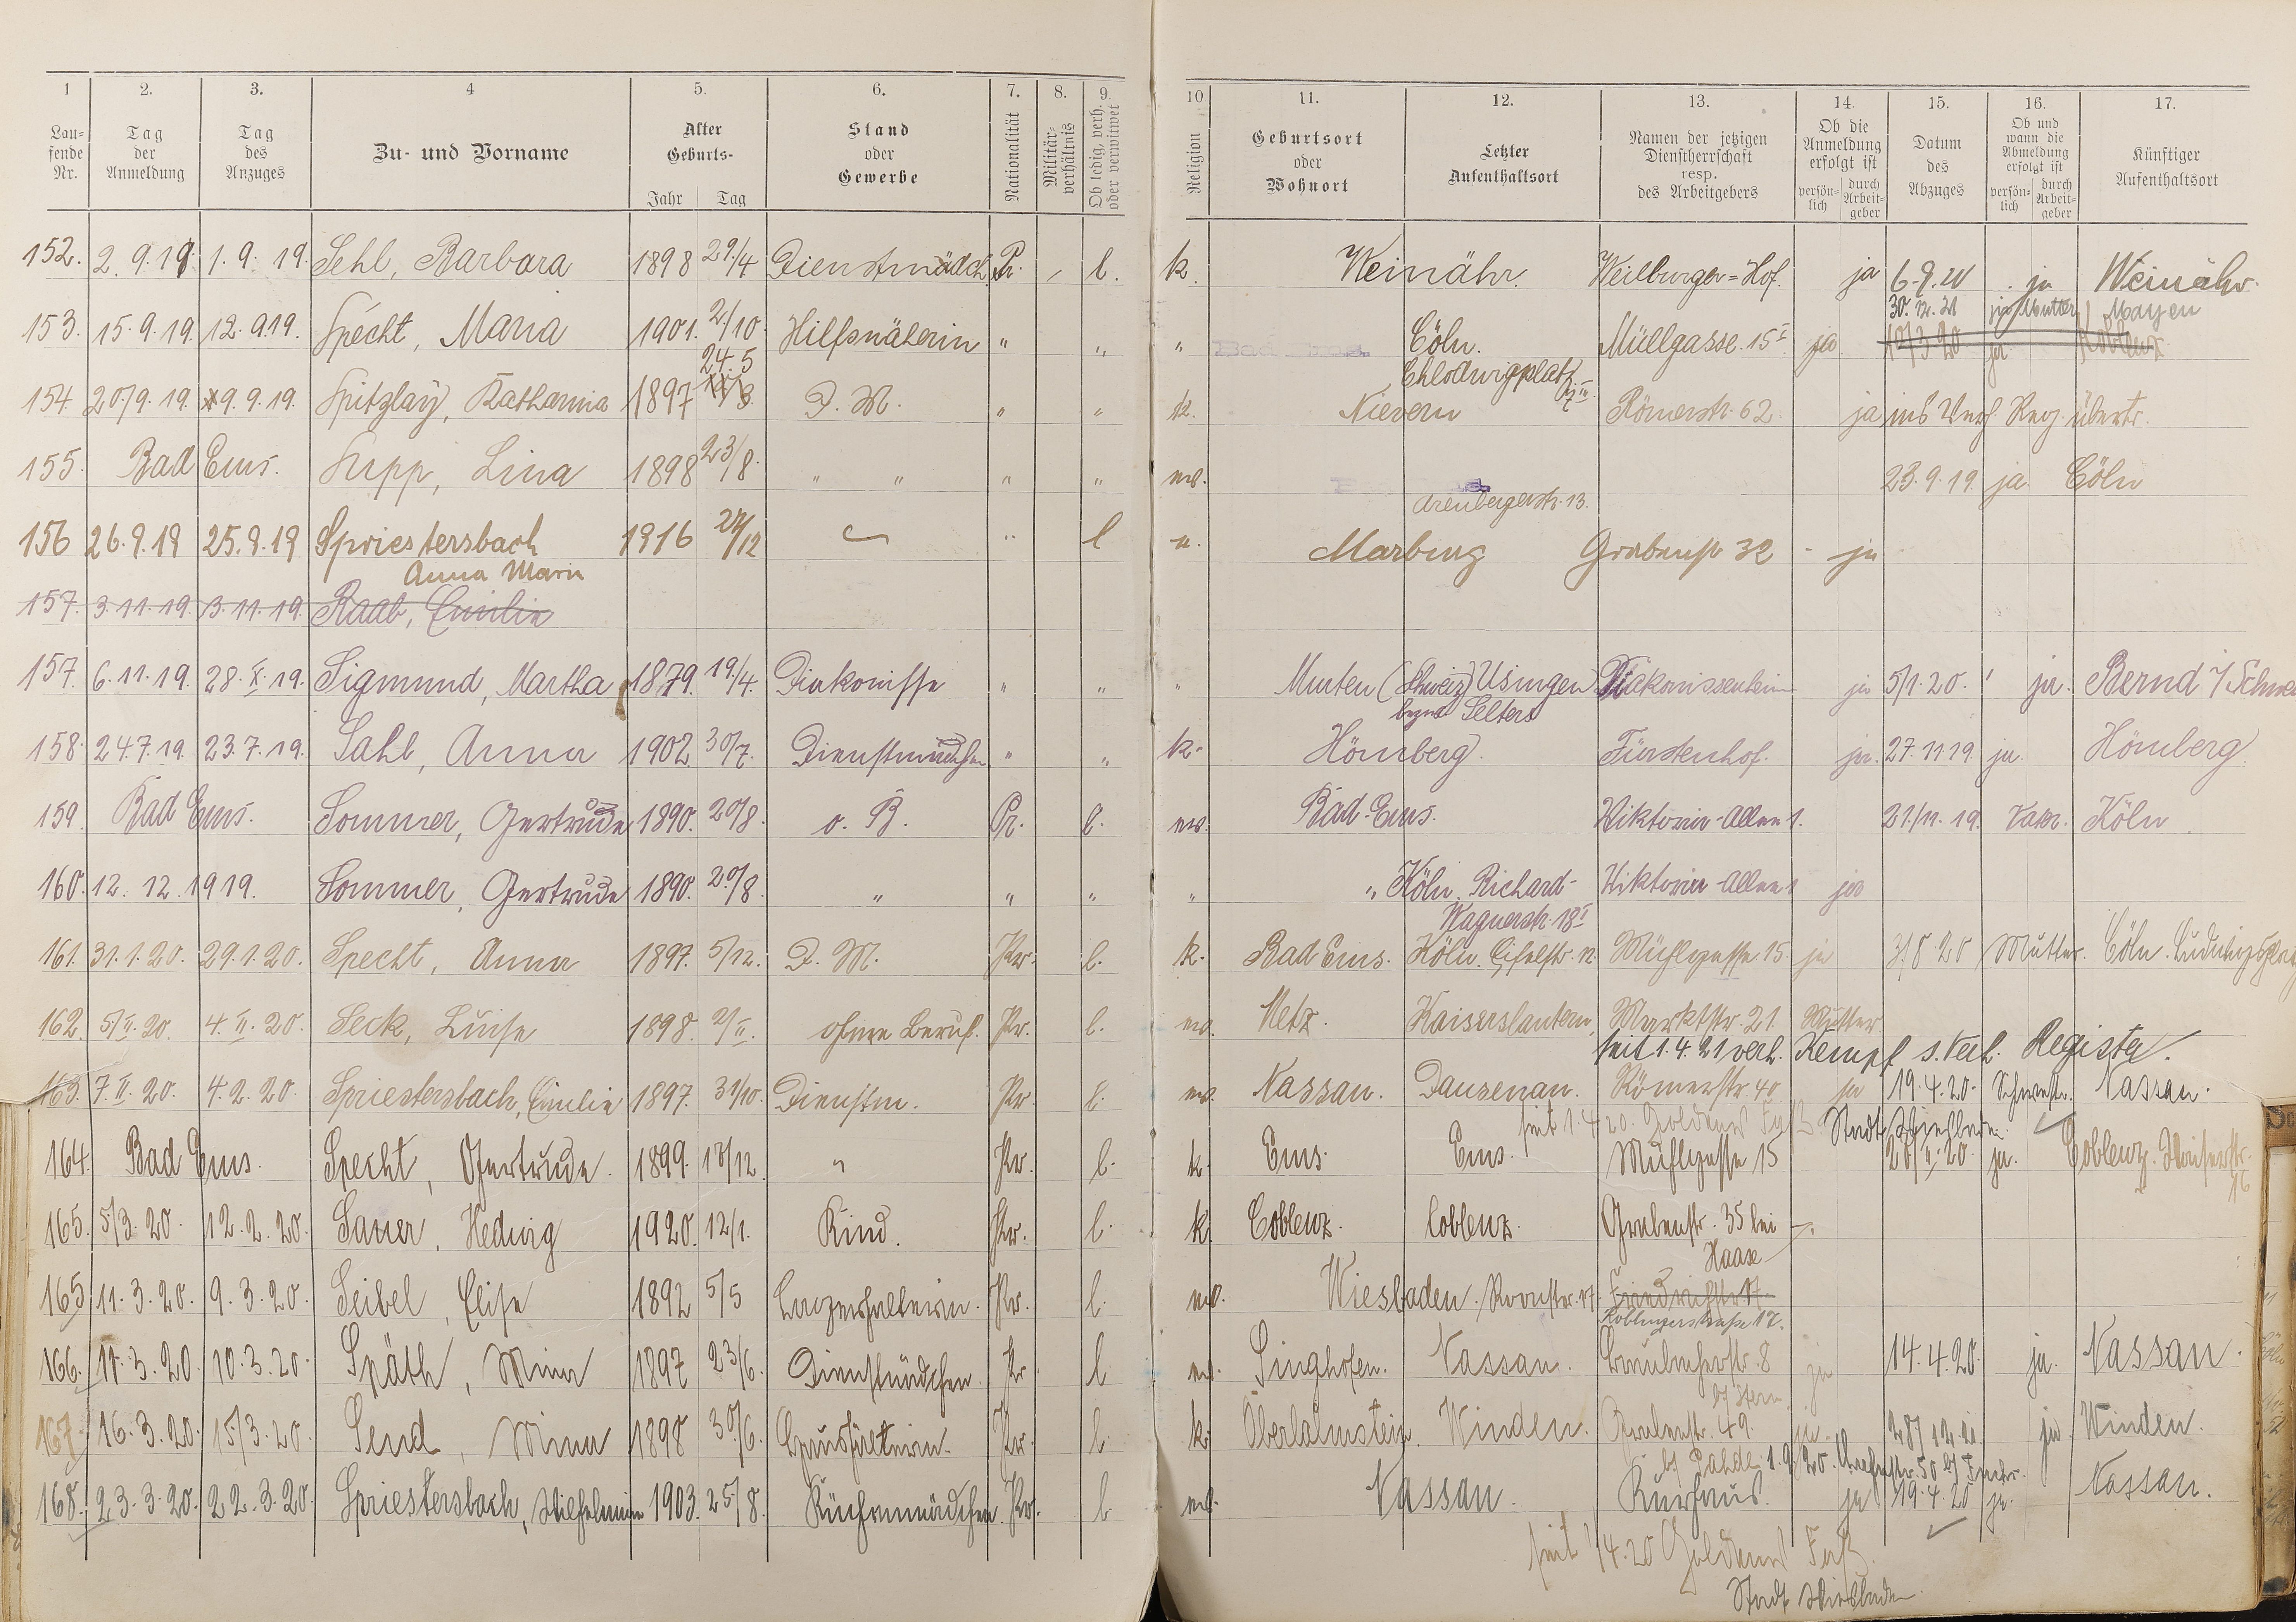 1 2. 3. 4 5. 6. 7. 8. 9. 10 11. 12. 13. 14. 15. 16. 17.
Lau-
fende
Nr.
Tag
der
Anmeldung
Tag
des
Anzuges
Zu- und Vorname
Alter
Geburts-
Jahr Tag
Stand
oder
Gewerbe
Nationalität
Militär-
verhältnis
Ob ledig, verh.
oder verwitwet
Religion
Geburtsort
oder
Wohnort
Letzter
Aufenthaltsort
Namen der jetzigen
Dienstherrschaft
resp.
des Arbeitgebers
Ob die
Anmeldung
erfolgt ist
persön-
lich
durch
Arbeit-
geber
Datum
des
Abzuges
Ob und
wann die
Abmeldung
erfolgt ist
persön-
lich
durch
Arbeit-
geber
Künftiger
Aufenthaltsort
152. 2.9.19 1.9.19. Sehl, Barbara 1898 29./4 Dienstmädch. Pr. / l. k. Weinähr. Weilburger=Hof. ja 6.9.20 ja Weinähr.
30.12.21 ja (Mutter) Mayen
153. 15.9.19. 12.9.19. Specht, Maria 1901. 2./10. Hilfsnäherin " " " Bad Ems. Cöln. Müllgasse. 15 I ja 10/3.20 ja Koblenz
24.5 Chlodwigplatz
154. 20./9.19. 19.9.19. Spitzlay, Katharina 1897 D. M. " " k. Nievern Römerstr. 62. ja ins Verh. Reg. übertr.
155. Bad Ems. Supp, Lina 1898 23/8. " " " " ev. 23.9.19. ja Cöln
Arenbergerstr. 13.
156 26.9.19 25.9.19 Spriestersbach 1916 27/12 " l u. Marburg Grabenstr 32 - ja
Anna Maria
157. 3.11.19. 3.11.19. Raab, Emilie
157. 6.11.19. 28.X.19. Sigmund, Martha 1879. 19./4. Diakonisse " " " Murten (Schweiz) Usingen Diakonissenheim ja 5/1.20. ! ja. Bernd i/Schwei
bezw. Selters
158. 24.7.19. 23.7.19. Sahl, Anna 1902. 30/7. Dienstmädchen " " k. Hömberg. Fürstenhof. ja. 27.11.19. ja. Hömberg.
159. Bad Ems. Sommer, Gertrude 1890. 20/8. o. B. Pr. l. ev. Bad-Ems. Viktoria-Allee 1. 21./11.19. Vater. Köln.
160. 12.12.1919. Sommer, Gertrude 1890. 20/8. " " " " " Köln, Richard- Viktoria-Allee 1 ja
Wagnerstr. 18 I
161. 31.1.20. 29.1.20. Specht, Anna 1897. 5/12. D. M. Pr. l. k. Bad Ems. Köln. Eifelstr. 12. Mühlgasse 15. ja 3/8.20 Mutter. Cöln. Ludwigsplatz
162. 5/II.20. 4.II.20. Seck, Luise 1898. 2/II. ohne Beruf. Pr. l. ev. Metz. Kaiserslautern, Marktstr. 21. Mutter
seit 1.4.21 verh. Kempf s. Verh. Register.
163. 7.II.20. 4.2.20. Spriestersbach, Emilie 1897. 31/10. Dienstm. Pr. l. ev. Nassau. Dausenau. Römerstr. 40 ja 19.4.20. Schwester. Nassau.
seit 1.4.20. Goldenes Faß. Stadt Wiesbaden.
164. Bad Ems. Specht, Gertrude. 1899. 13/12. " Pr. l. k. Ems. Ems. Mühlgasse 15 26/II.20. ja. Coblenz. Kaiserstr.
16
165. 5/3.20. 12.2.20. Sauer, Hedwig 1920. 12/1. Kind. Pr. l. k. Coblenz. Coblenz. Grabenstr. 35 bei
Haase
165 11.3.20. 9.3.20. Seibel, Elise 1892 5/5 Lagerhalterin. Pr. l. ev. Wiesbaden. Roonstr. 17. Friedrichstr 17
Koblenzerstraße 17.
166. 11.3.20. 10.3.20. Späth, Mina 1897 23/6. Dienstmädchen. Pr l ev. Singhofen. Nassau. 8 ja 14.4.20. ja. Nassau.
b/ Stern.
167 16.3.20. 15/3.20. Send, Mina 1898 30/6. Haushälterin. Pr. l. k. Oberlahnstein. Winden. Grabenstr. 49. ja. 28/12.21. ja. Winden.
1.9.20.
168. 23.3.20. 22.3.20. Spriestersbach, Wilhelmine 1903. 25/8. Küchenmädchen. Pr. l ev. Nassau. Kurhaus. ja 19.4.20 ja. Nassau.
seit 1/4.20 Goldenes Faß.
Stadt Wiesbaden.